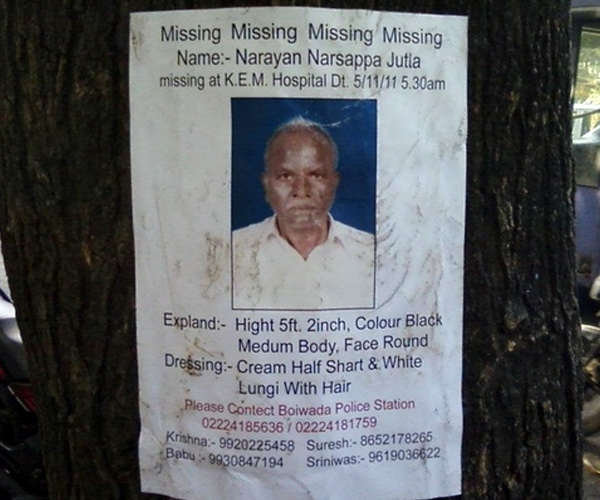 Missing Missing Missing Missing
Name:- Narayan Narsappa Jutla
missing at K.E.M. Hospital Dt. 5/11/11 5.30am
Expland:- Hight 5ft. 2inch, Colour Black
Medum Body, Face Round
Dressing:- Cream Half Shart & White
Lungi With Hair
Please Contect Boiwada Police Station
02224185636 / 02224181759
Krishna:- 9920225458 Suresh:- 8652178265
Babu :- 9930847194 Sriniwas:- 9619036622